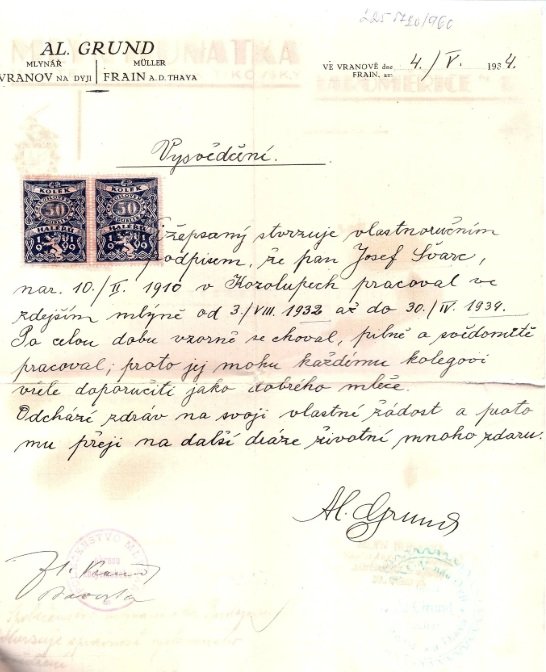 225 5720/960
AL. GRUND
MLYNÁŘ MÜLLER
VRANOV NA DYJI FRAIN A. D. THAYA
VE VRANOVĚ dne 4./V. 1934.
FRAIN, am
Vysvědčení.
KOLEK KOLEK
50 50
HALÉŘŮ HALÉŘŮ
1919 1919
ížepsaný stvrzuje vlastnoručním
podpisem, že pan Josef Švarc,
nar. 10./II. 1910 v Kozolupech pracoval ve
zdejším mlýně od 3./VIII. 1932 až do 30./IV. 1934.
Po celou dobu vzorně se choval, pilně a svědomitě
pracoval; proto jej mohu každému kolegovi
vřele doporučiti jako dobrého mleče.
Odchází zdráv na svoji vlastní žádost a proto
mu přeji na další dráze životní mnoho zdaru.
Al. Grund
starosta